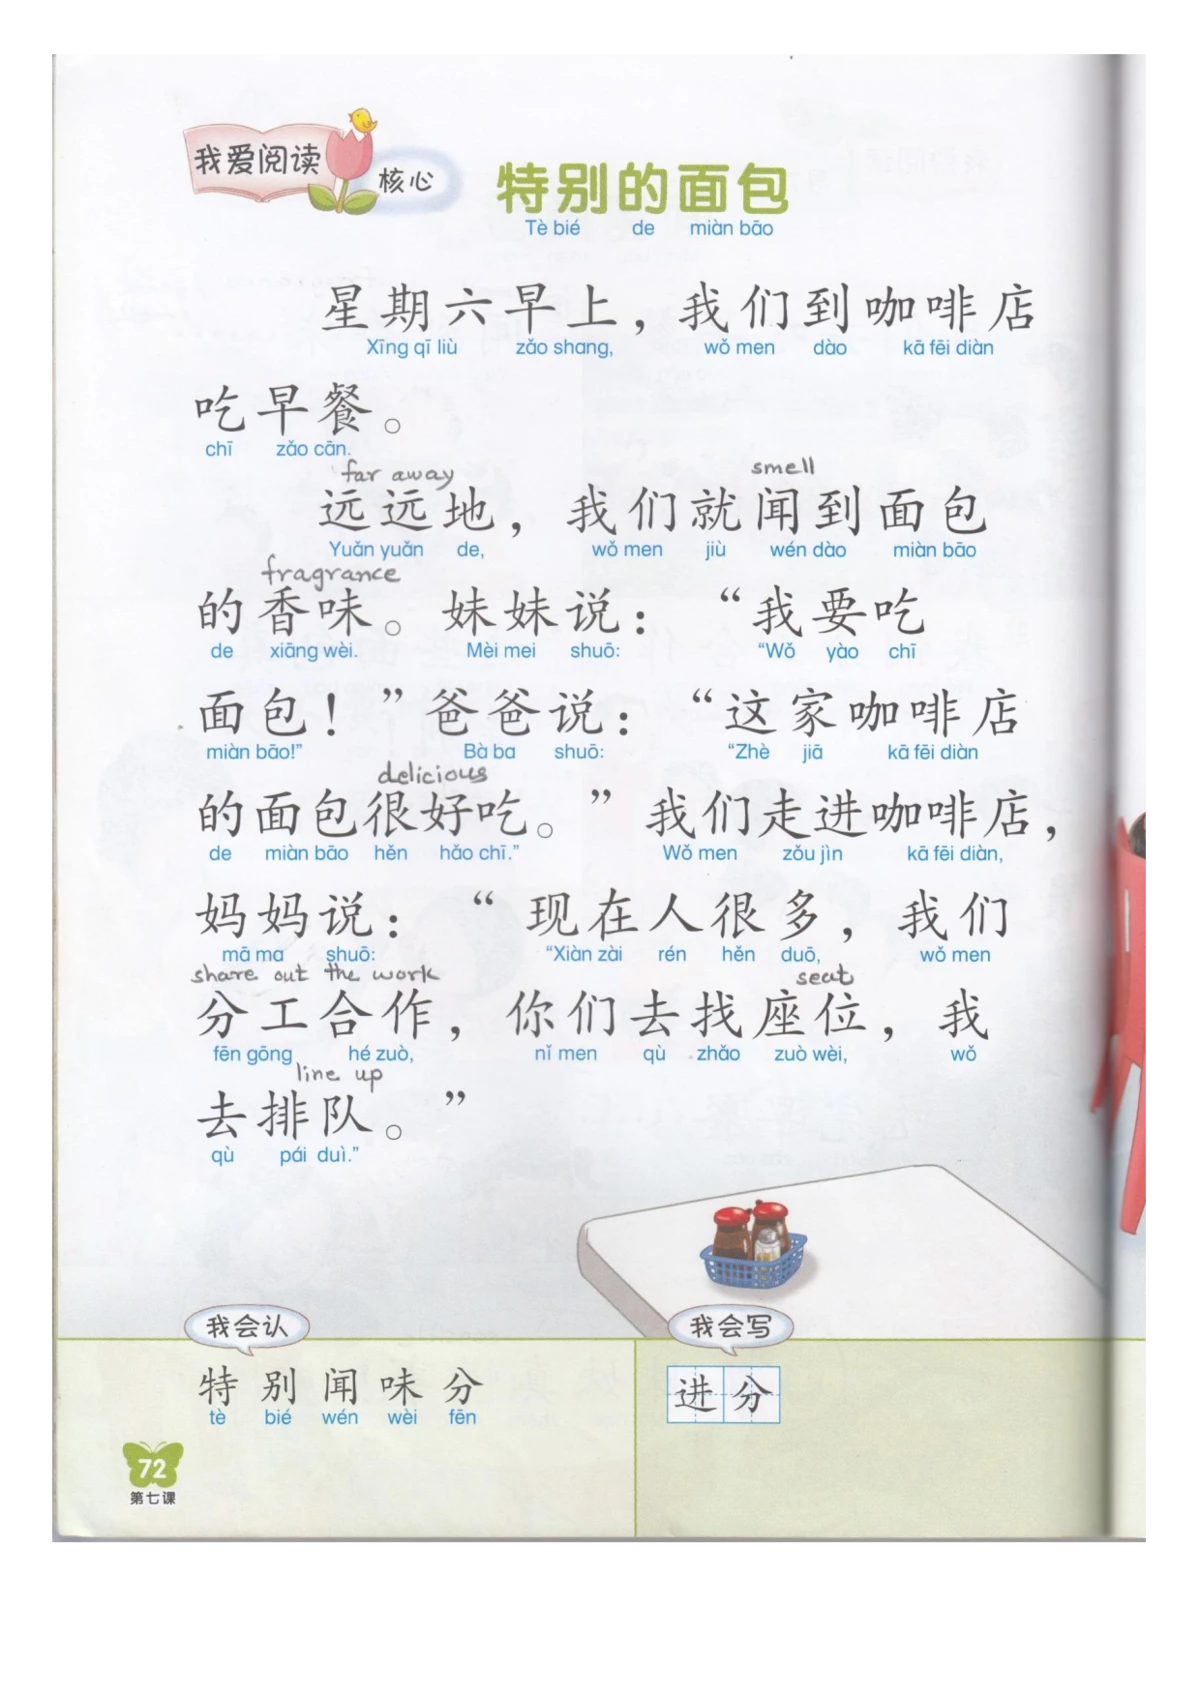 我爱阅读
核心
特别的面包
Tè bié de miàn bāo
星期六早上，我们到咖啡店
Xīng qī liù zǎo shang, wǒ men dào kā fēi diàn
吃早餐。
chī zǎo cān.
far away smell
远远地，我们就闻到面包
Yuǎn yuǎn de, wǒ men jiù wén dào miàn bāo
fragrance
的香味。妹妹说：“我要吃
de xiāng wèi. Mèi mei shuō: “Wǒ yào chī
面包！”爸爸说：“这家咖啡店
miàn bāo!” Bà ba shuō: “Zhè jiā kā fēi diàn
delicious
的面包很好吃。”我们走进咖啡店，
de miàn bāo hěn hǎo chī.” Wǒ men zǒu jìn kā fēi diàn,
妈妈说：“现在人很多，我们
mā ma shuō: “Xiàn zài rén hěn duō, wǒ men
share out the work seat
分工合作，你们去找座位，我
fēn gōng hé zuò, nǐ men qù zhǎo zuò wèi, wǒ
line up
去排队。”
qù pái duì.”
我会认
特 别 闻 味 分
tè bié wén wèi fēn
我会写
进 分
72
第七课